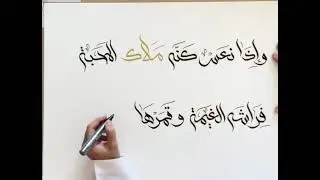 واذا نعس كنه ملاك المحبة
فراشه الغيمة وقمرها